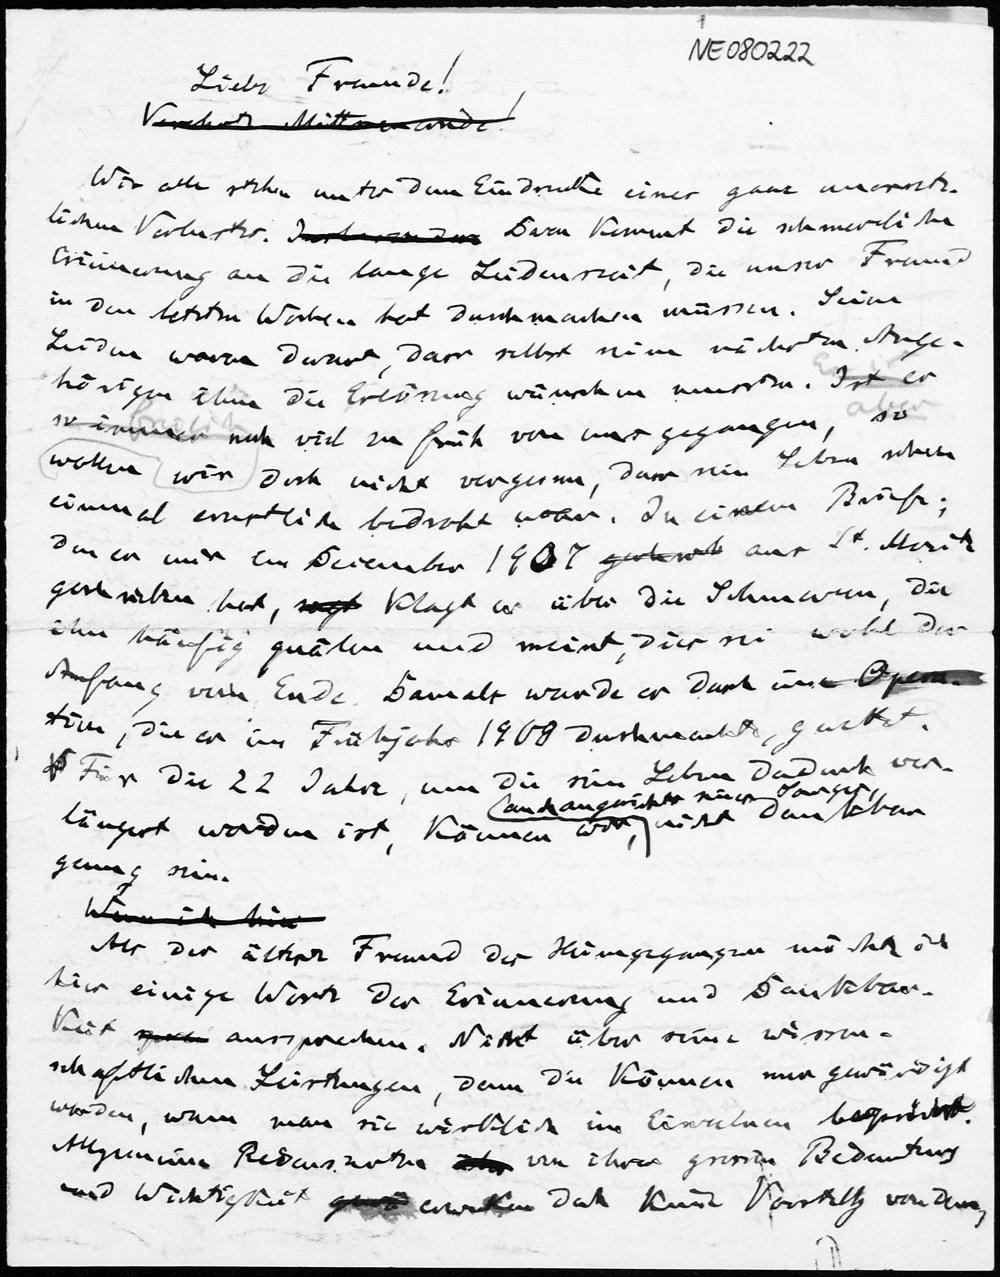 NE080222
Liebe Freunde!
Verehrte Mittrauernde!
Wir alle stehen unter dem Eindrucke eines ganz unersetz-
lichen Verlustes. Dazu kommt die schmerzliche
Erinnerung an die lange Leidenszeit, die unser Freund
in den letzten Wochen hat durchmachen müssen. Seine
Leiden waren derart, dass selbst seine nächsten Ange-
hörigen ihm die Erlösung wünschen mussten. Ist er
aber
so immer noch viel zu früh von uns gegangen, so
wollen wir doch nicht vergessen, dass sein Leben schon
einmal ernstlich bedroht war. In einem Briefe,
den er mir im Dezember 1907 aus St. Moritz
geschrieben hat, sagt klagt er über die Schmerzen, die
ihn häufig quälen und meint, dies sei wohl der
Anfang vom Ende. Damals wurde er durch eine Opera-
tion, die er im Frühjahr 1908 durchmachte, gerettet.
Für die 22 Jahre, um die sein Leben dadurch ver-
auch angesichts seines Sarges,
längert worden ist, können wir, nicht dankbar
genug sein.
Wenn ich hier
Als der älteste Freund des Heimgegangenen möchte ich
hier einige Worte der Erinnerung und Dankbar-
keit aussprechen. Nicht über seine wissen-
schaftlichen Leistungen, denn die können nur gewürdigt
werden, wenn man sie wirklich im Einzelnen bespricht.
Allgemeine Redensarten von ihrer grossen Bedeutung
und Wichtigkeit erwecken doch keine Vorstellg von dem,